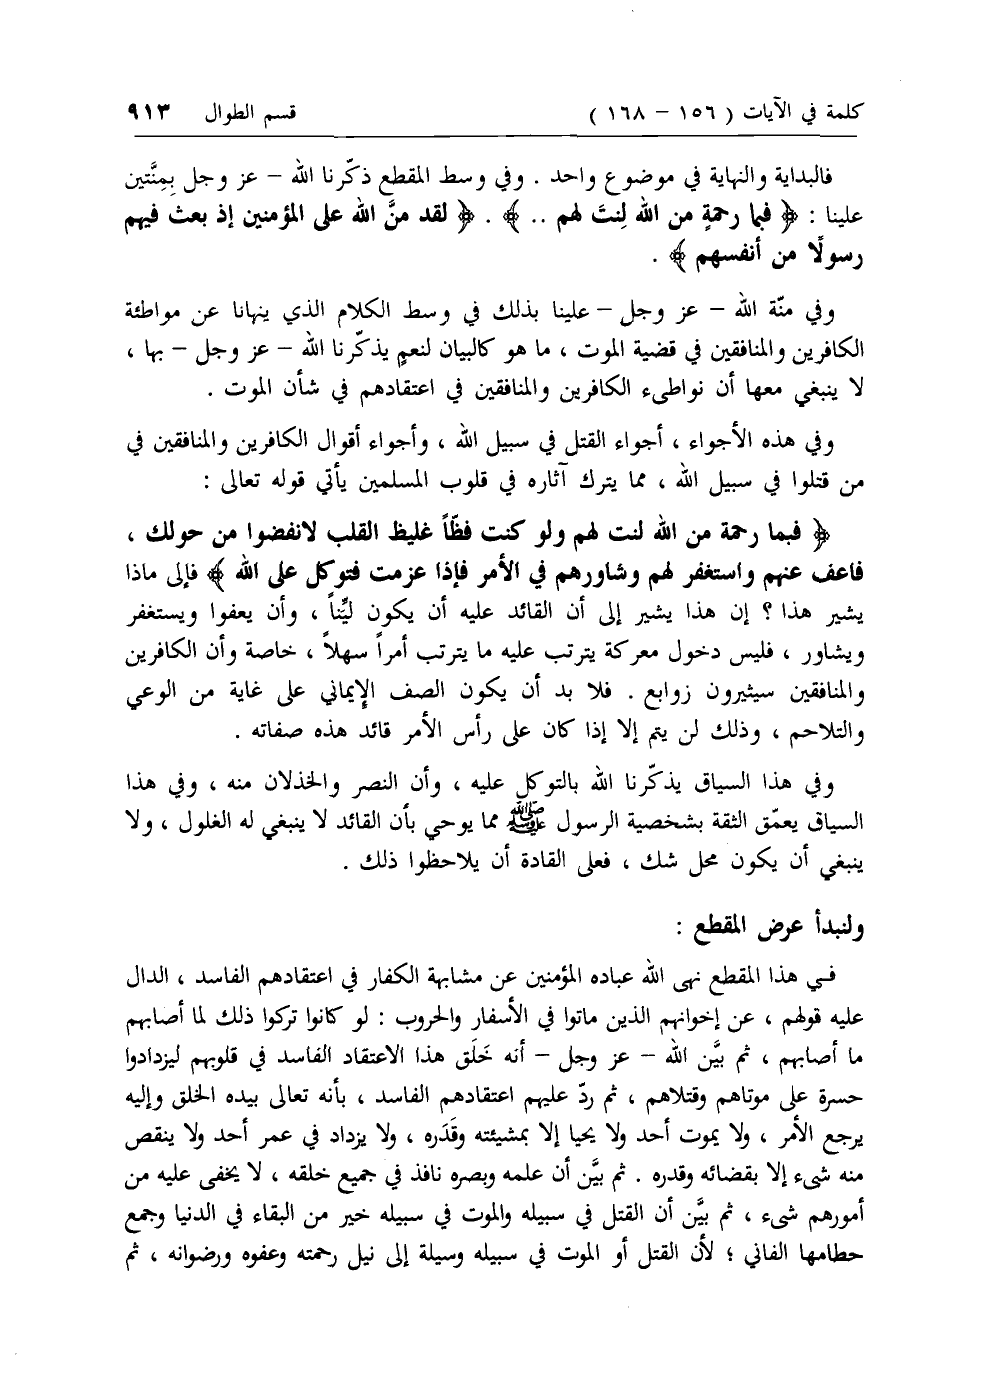 كلمة في الآيات ( ١٥٦ – ١٦٨ ) قسم الطوال ٩١٣
فالبداية والنهاية في موضوع واحد . وفي وسط المقطع ذكّرنا الله – عز وجل بِمِنَّتين
علينا : ﴿ فبما رحمةٍ من الله لِنتَ لهم .. ﴾ . ﴿ لقد منَّ الله على المؤمنين إذ بعث فيهم
رسولًا من أنفسهم ﴾ .
وفي منّة الله – عز وجل – علينا بذلك في وسط الكلام الذي ينهانا عن مواطئة
الكافرين والمنافقين في قضية الموت ، ما هو كالبيان لنعمٍ يذكّرنا الله – عز وجل – بها ،
لا ينبغي معها أن نواطىء الكافرين والمنافقين في اعتقادهم في شأن الموت .
وفي هذه الأجواء ، أجواء القتل في سبيل الله ، وأجواء أقوال الكافرين والمنافقين في
من قتلوا في سبيل الله ، مما يترك آثاره في قلوب المسلمين يأتي قوله تعالى :
﴿ فبما رحمة من الله لنت لهم ولو كنت فظّاً غليظ القلب لانفضوا من حولك ،
فاعف عنهم واستغفر لهم وشاورهم في الأمر فإذا عزمت فتوكل على الله ﴾ فإلى ماذا
يشير هذا ؟ إن هذا يشير إلى أن القائد عليه أن يكون ليِّناً ، وأن يعفوا ويستغفر
ويشاور ، فليس دخول معركة يترتب عليه ما يترتب أمراً سهلاً ، خاصة وأن الكافرين
والمنافقين سيثيرون زوابع . فلا بد أن يكون الصف الإيماني على غاية من الوعي
والتلاحم ، وذلك لن يتم إلا إذا كان على رأس الأمر قائد هذه صفاته .
وفي هذا السياق يذكّرنا الله بالتوكل عليه ، وأن النصر والخذلان منه ، وفي هذا
السياق يعمّق الثقة بشخصية الرسول ﷺ مما يوحي بأن القائد لا ينبغي له الغلول ، ولا
ينبغي أن يكون محل شك ، فعلى القادة أن يلاحظوا ذلك .
ولنبدأ عرض المقطع :
فـي هذا المقطع نهى الله عباده المؤمنين عن مشابهة الكفار في اعتقادهم الفاسد ، الدال
عليه قولهم ، عن إخوانهم الذين ماتوا في الأسفار والحروب : لو كانوا تركوا ذلك لما أصابهم
ما أصابهم ، ثم بيَّن الله – عز وجل – أنه خَلَق هذا الاعتقاد الفاسد في قلوبهم ليزدادوا
حسرة على موتاهم وقتلاهم ، ثم ردّ عليهم اعتقادهم الفاسد ، بأنه تعالى بيده الخلق وإليه
يرجع الأمر ، ولا يموت أحد ولا يحيا إلا بمشيئته وقَدَره ، ولا يزداد في عمر أحد ولا ينقص
منه شىء إلا بقضائه وقدره . ثم بيَّن أن علمه وبصره نافذ في جميع خلقه ، لا يخفى عليه من
أمورهم شىء ، ثم بيَّن أن القتل في سبيله والموت في سبيله خير من البقاء في الدنيا وجمع
حطامها الفاني ؛ لأن القتل أو الموت في سبيله وسيلة إلى نيل رحمته وعفوه ورضوانه ، ثم